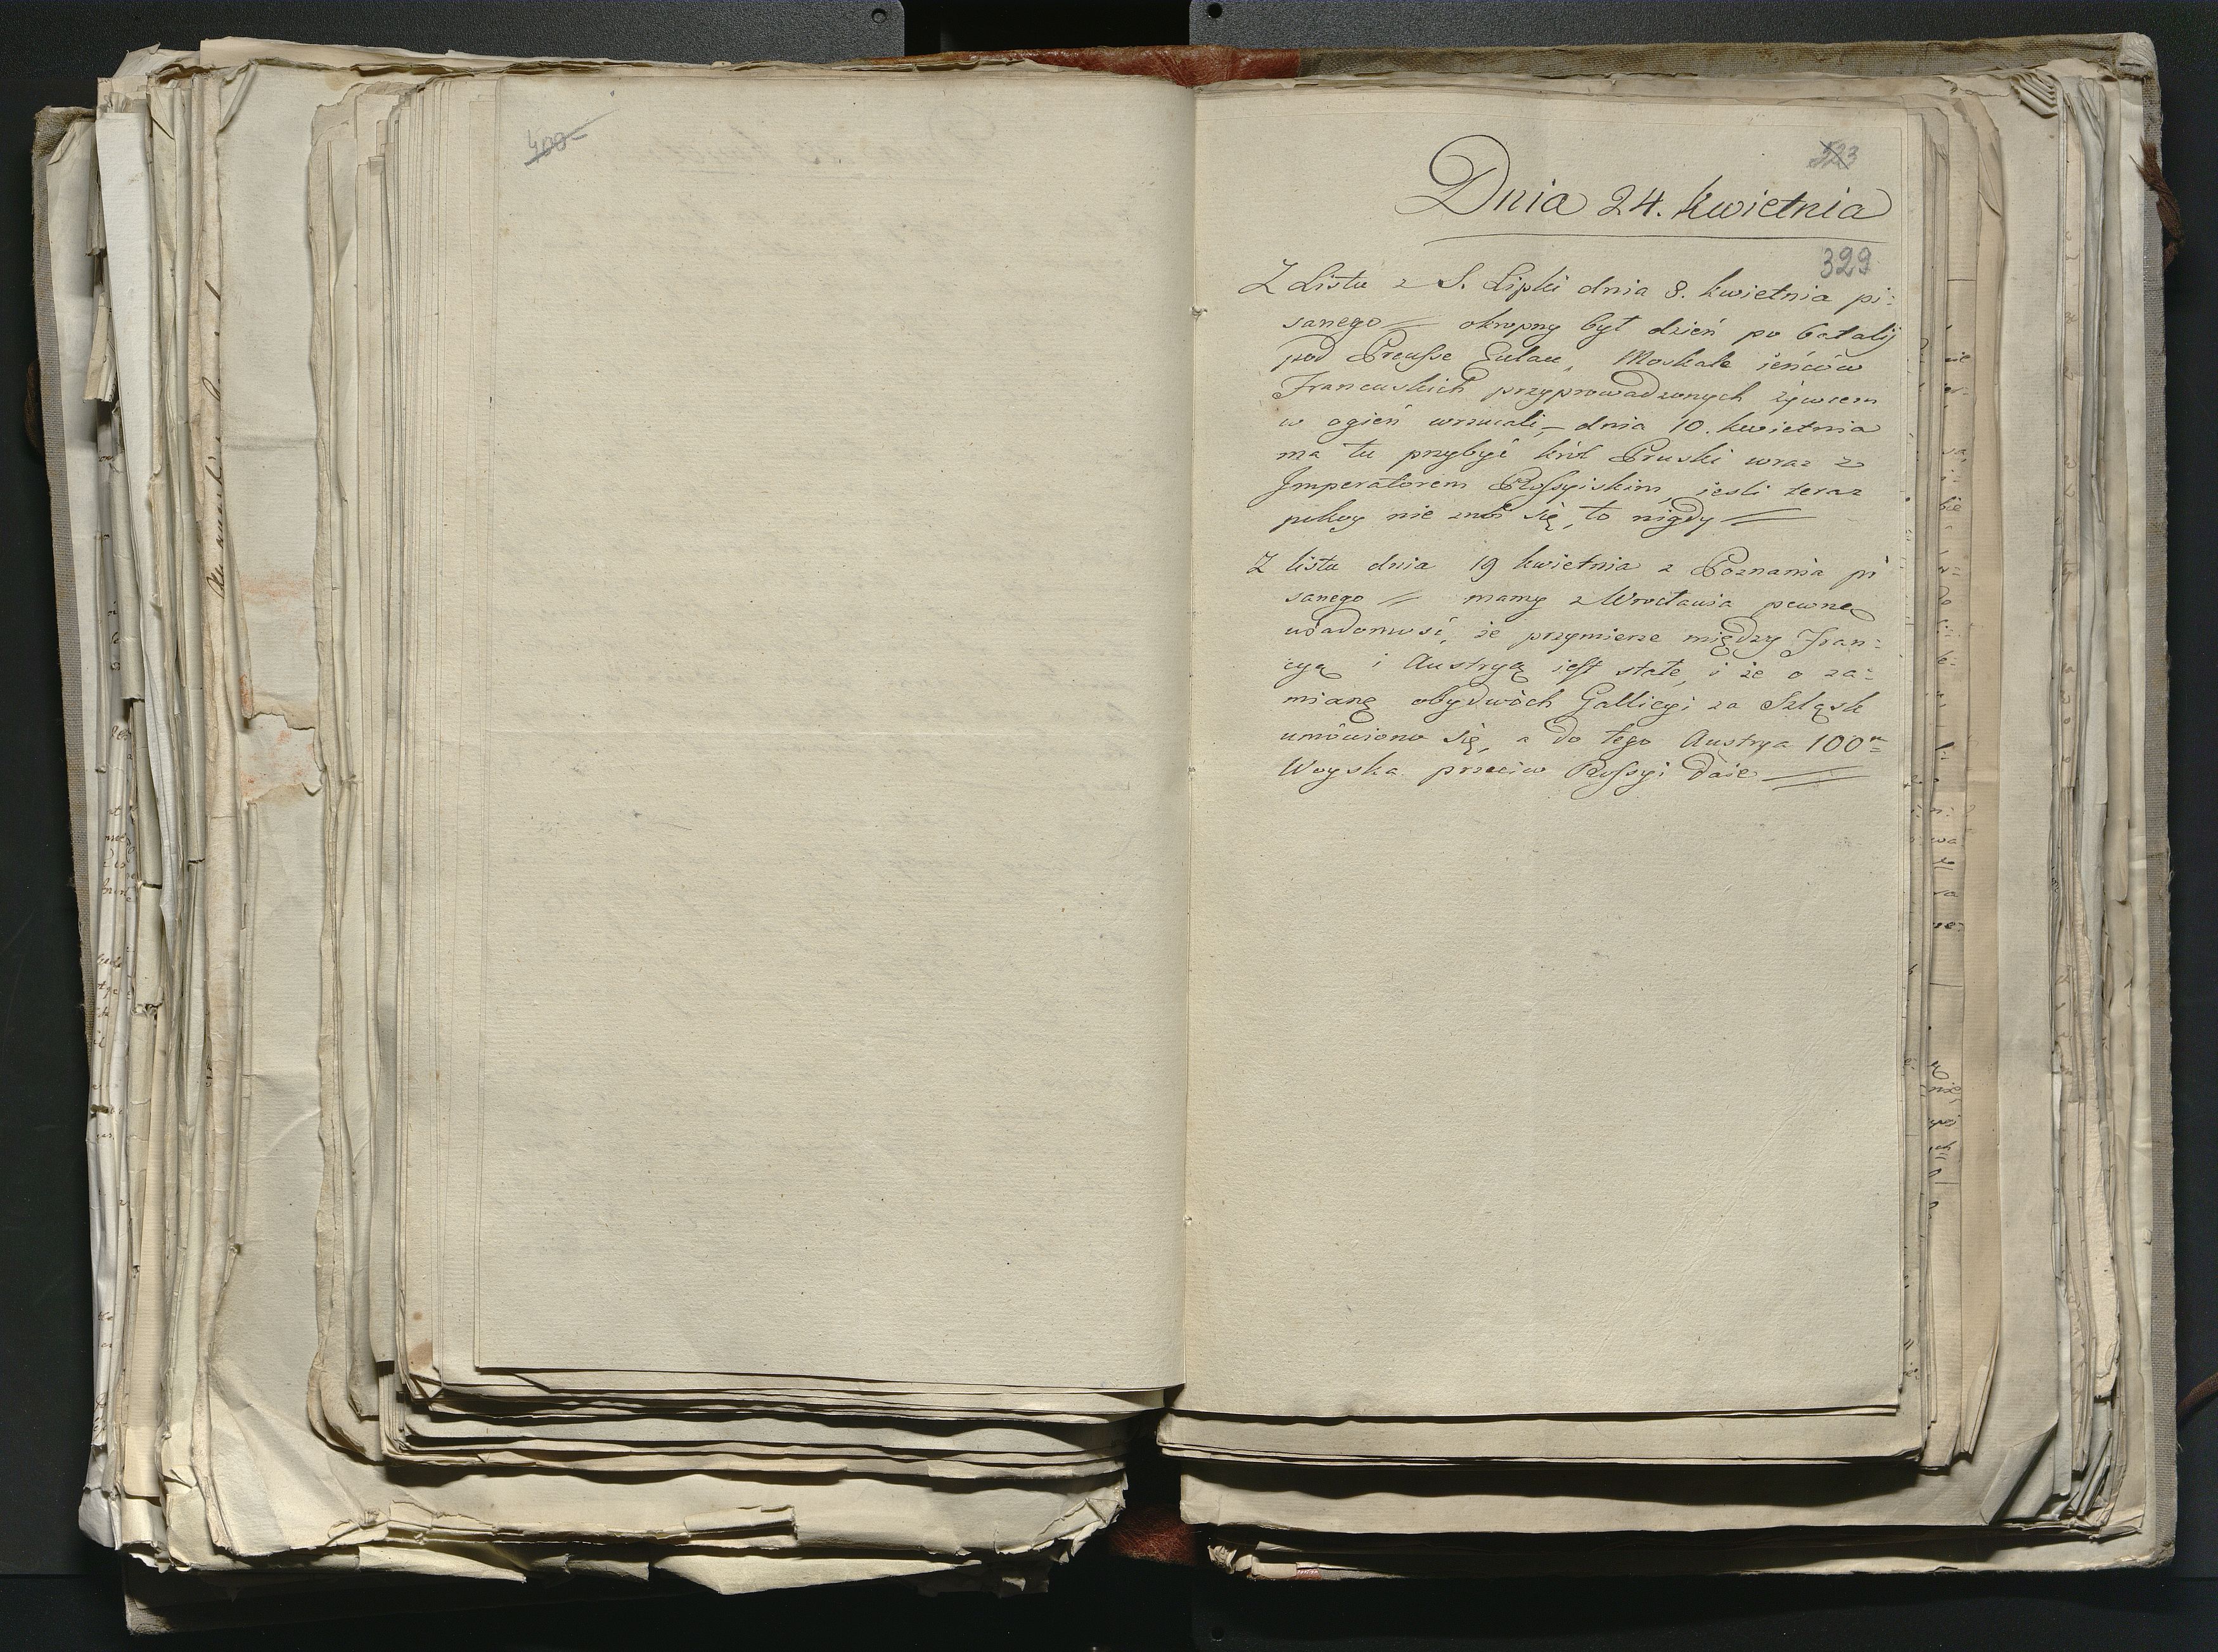 400
323
Dnia 24. kwietnia
329
Z Listu z S. Lipki dnia 8. kwietnia pi:
sanego // okropny był dzień po batalij
pod Preusse Eulau, Moskale ieńców
Francuskich przyprowadzonych żywcem
w ogień wrzucali, – dnia 10. kwietnia
ma tu przybyć król Pruski wraz z
Imperatorem Rossyiskim, iesli teraz
pokoy nie zrobi się, to nigdy //
Z listu dnia 19 kwietnia z Poznania pi
sanego // mamy z Wrocławia pewną
wiadomość, że przymierze między Fran:
cyą i Austryą iest stałe, i że o za:
mianę obydwóch Gallicyi za Szląsk
umówiono się, a do tego Austrya 100m
Woyska przeciw Rossyi daie //